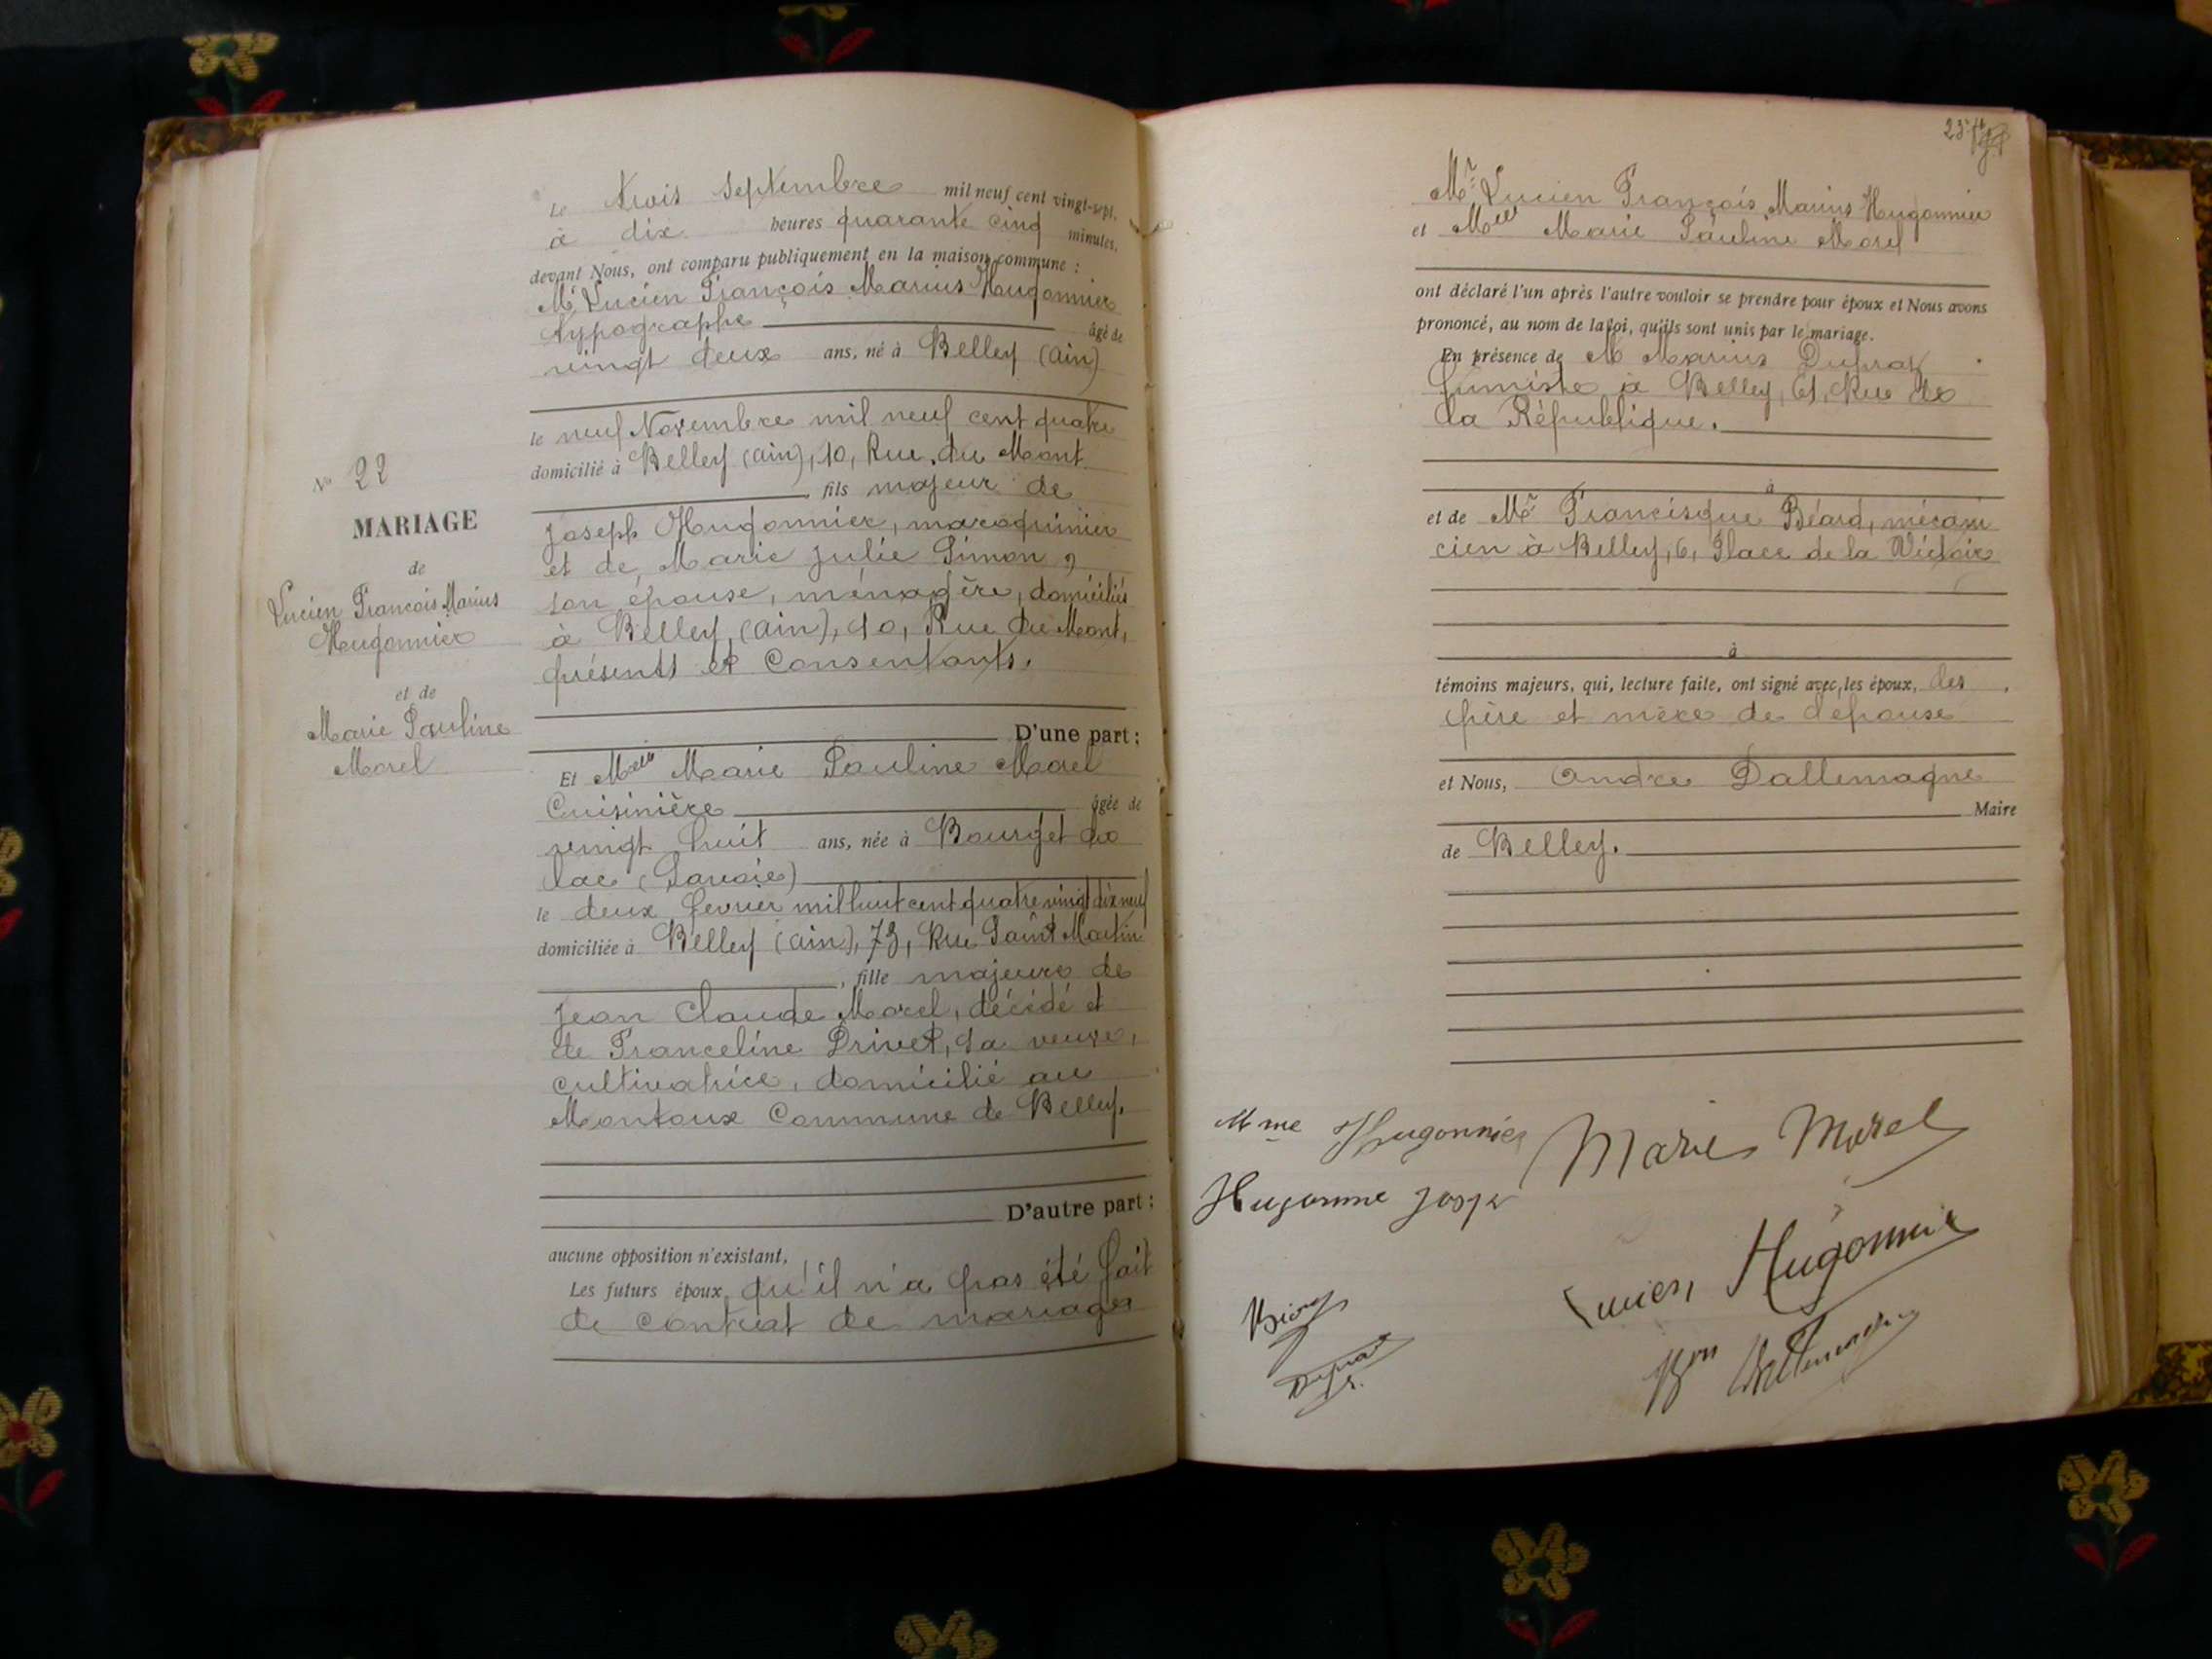 N° 22
MARIAGE
de
Lucien François Marius
Hugonnier
et de
Marie Pauline
Morel
Le trois Septembre mil neuf cent vingt-sept,
à dix heures quarante cinq minutes,
devant Nous, ont comparu publiquement en la maison commune :
Mr Lucien François Marius Hugonnier
typographe âgé de
vingt deux ans, né à Belley (Ain)
le neuf Novembre mil neuf cent quatre
domicilié à Belley (Ain), 10, Rue du Mont
, fils majeur de
Joseph Hugonnier, maroquinier
et de Marie Julie Simon,
son épouse, ménagère, domiciliés
à Belley, (Ain), 10, Rue du Mont,
présents et Consentants.
D'une part :
Et Melle Marie Pauline Morel
Cuisinière âgée de
vingt huit ans, née à Bourget du
lac (Savoie)
le deux fevrier mil huit cent quatre vingt dix neuf
domiciliée à Belley (Ain), 73, Rue Saint Martin
, fille majeure de
Jean Claude Morel, décédé et
de Franceline Privet, sa veuve,
cultivatrice, domicilié au
Montoux Commune de Belley.
D'autre part :
aucune opposition n'existant,
Les futurs époux qu'il n'a pas été fait
de contrat de mariage
23
Mr Lucien François Marius Hugonnier
et Melle Marie Pauline Morel
ont déclaré l'un après l'autre vouloir se prendre pour époux et Nous avons
prononcé, au nom de la loi, qu'ils sont unis par le mariage.
En présence de M Marius Dupraz
fumiste à Belley, 61, Rue de
la République.
à
et de Mr Francisque Béard, mécani
cien à Belley, 6, Place de la Victoire
à
témoins majeurs, qui, lecture faite, ont signé avec les époux, les
père et mère de l'épouse
et Nous, André Dallemagne
Maire
de Belley.
Mme Hugonnier
Marie Morel
Hugonnie Josep
Lucien Hugonnier
Dupraz
Bon Dallemagne